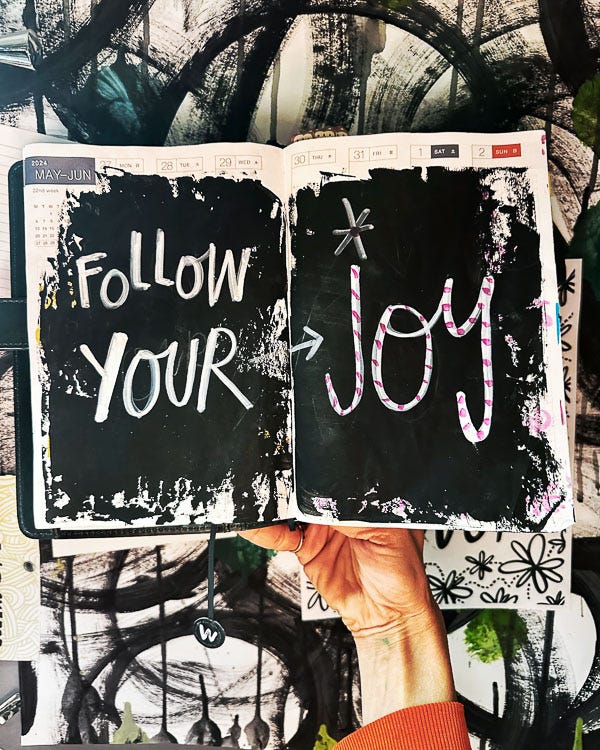 2024
MAY–JUN
27 MON
28 TUE
29 WED
30 THU
31 FRI
1 SAT
2 SUN
22nd week
FOLLOW
YOUR
JOY
W